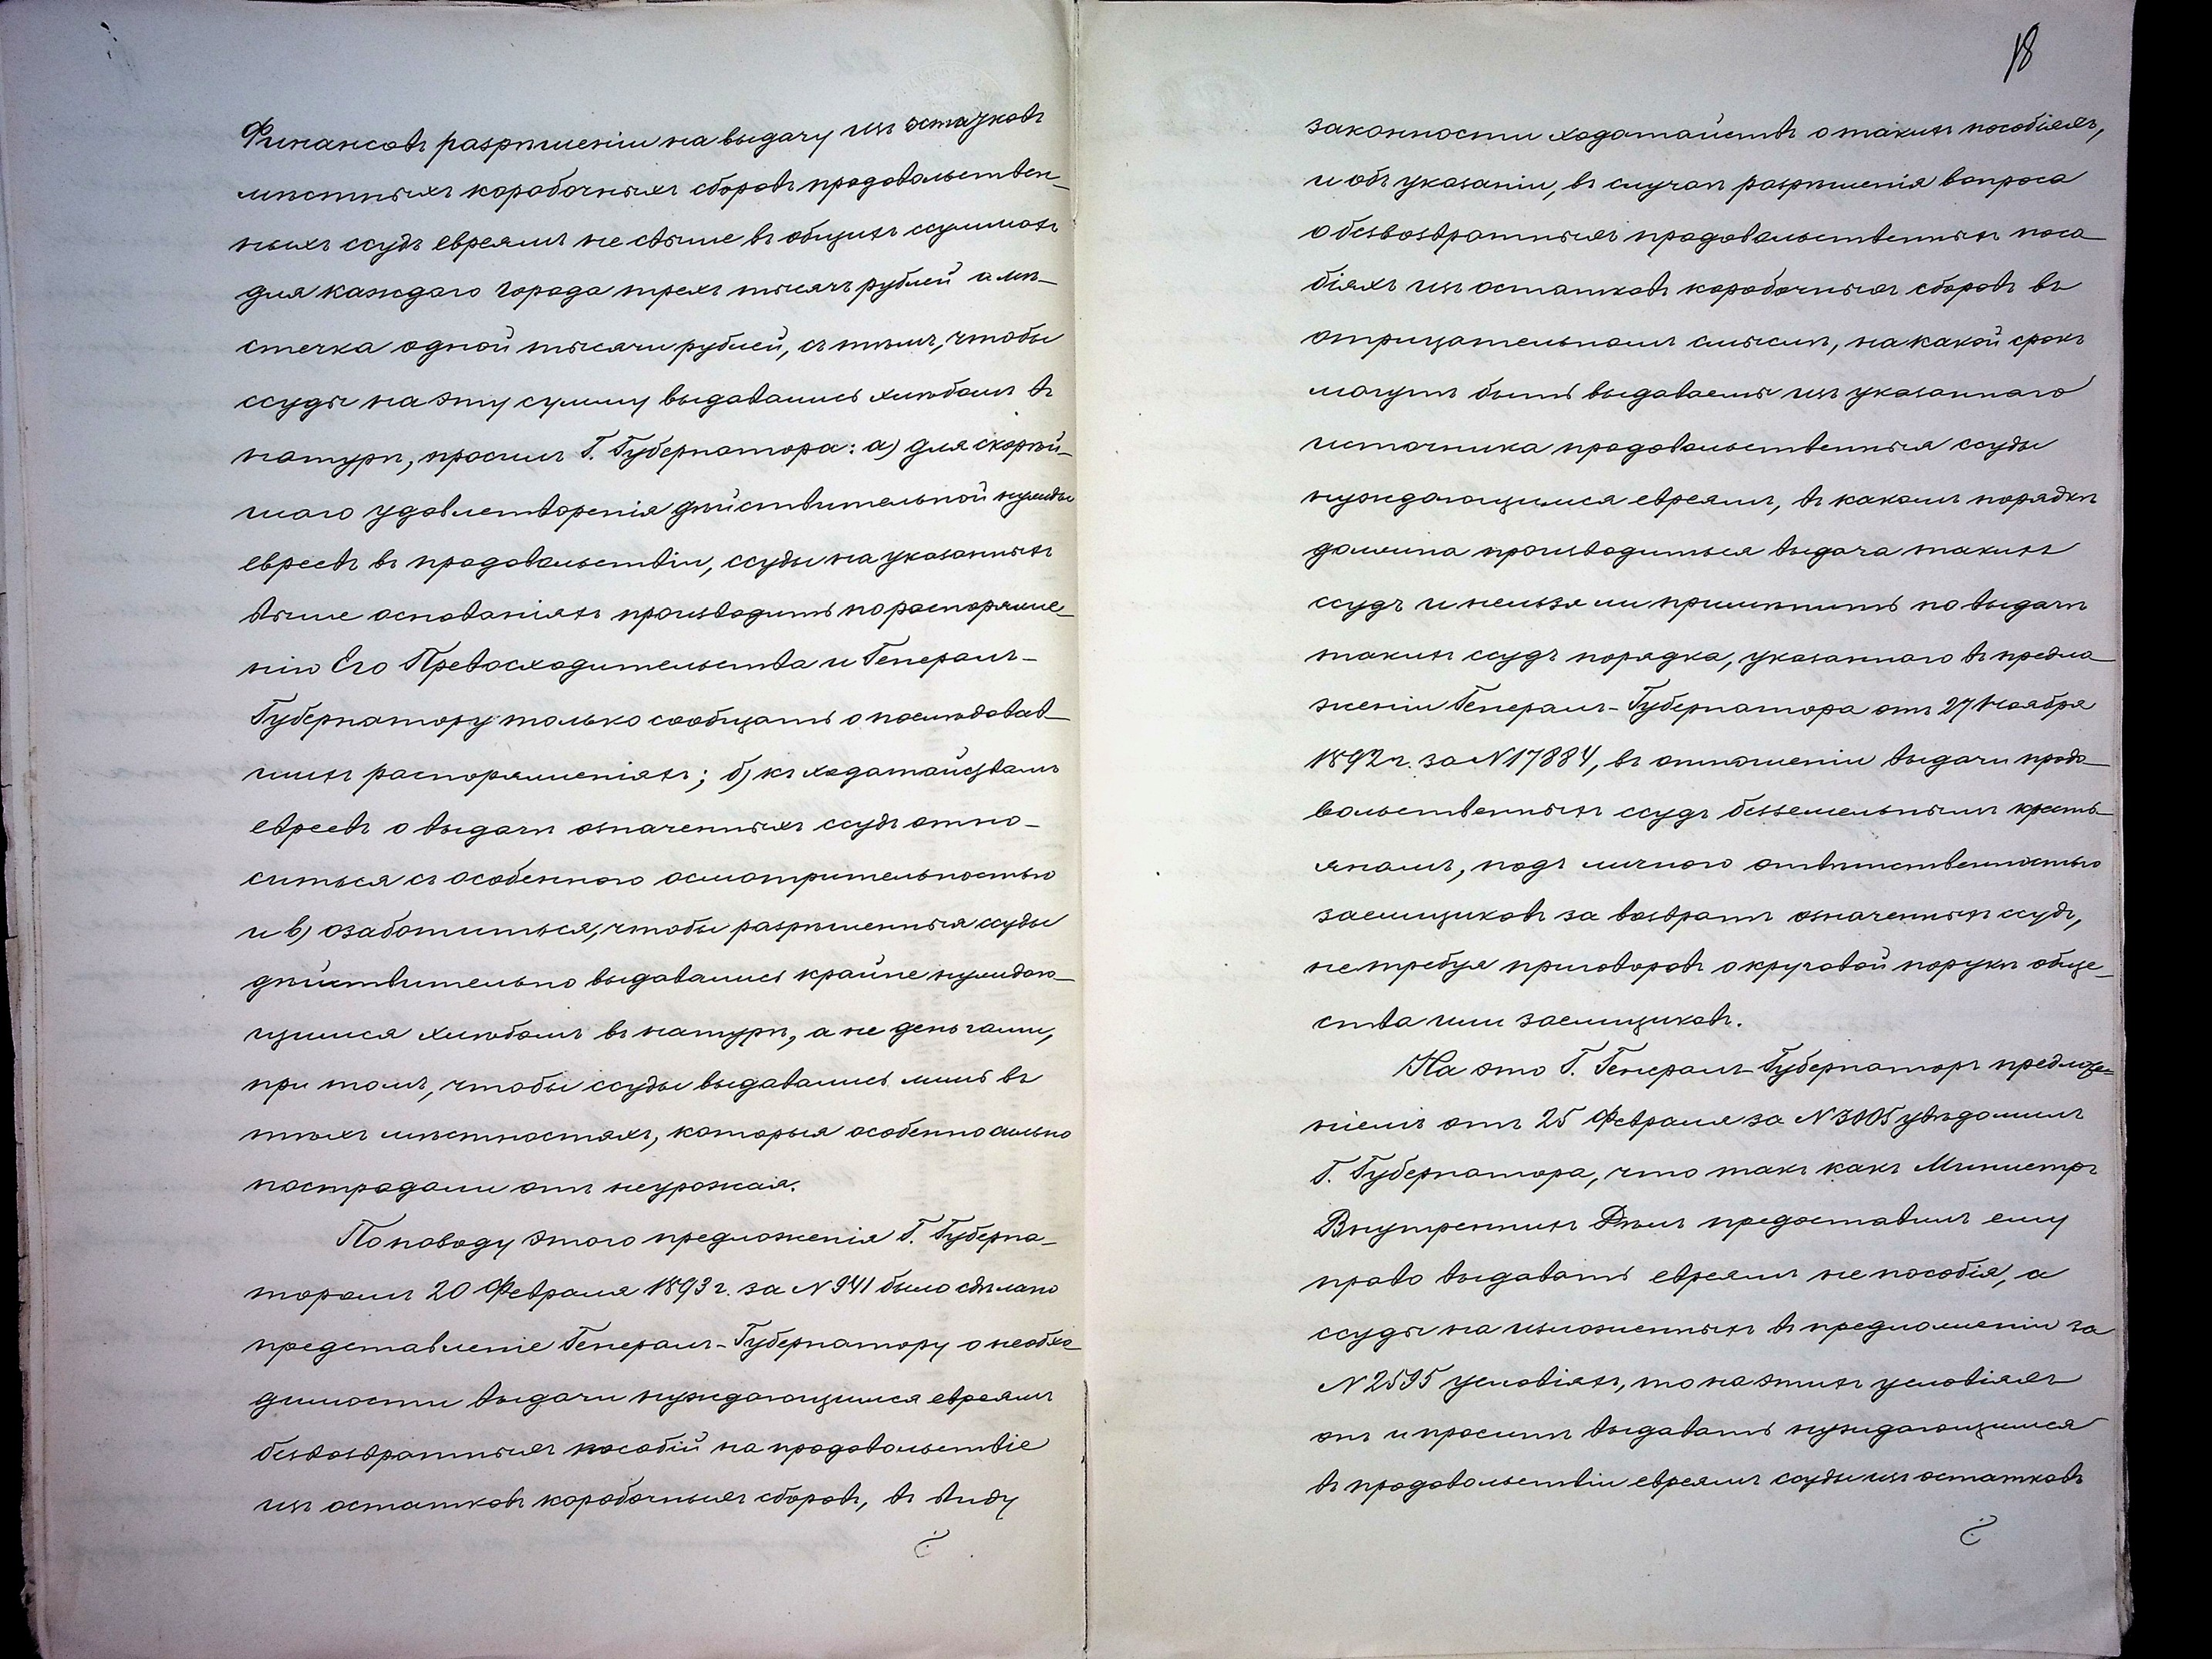 Финансовъ разрѣшеніи на выдачу изъ остатковъ
мѣстныхъ коробочныхъ сборовъ продовольствен-
ныхъ ссудъ евреямъ не свыше въ общихъ суммахъ
для каждаго города трехъ тысячъ рублей а мѣ-
стечка одной тысячи рублей, съ тѣмъ, чтобы
ссуды на эту сумму выдавались хлѣбомъ въ
натурѣ, просилъ Г. Губернатора: а) для скорѣй-
шаго удовлетворенія дѣйствительной нужды
евреевъ въ продовольствіи, ссуды на указанныхъ
выше основаніяхъ производить по распоряже-
нію Его Превосходительства и Генералъ-
Губернатору только сообщать о послѣдовав-
шихъ распоряженіяхъ; б) къ ходатайствамъ
евреевъ о выдачѣ означенныхъ ссудъ отно-
ситься съ особенною осмотрительностью
и в) озаботиться, чтобы разрѣшенныя ссуды
дѣйствительно выдавались крайне нуждаю-
щимся хлѣбомъ въ натурѣ, а не деньгами,
при томъ, чтобы ссуды выдавались лишь въ
тѣхъ мѣстностяхъ, которыя особенно сильно
пострадали отъ неурожая.
По поводу этого предложенія Г. Губерна-
торомъ 20 Февраля 1893 г. за N 941 было сдѣлано
представленіе Генералъ-Губернатору о необхо-
димости выдачи нуждающимся евреямъ
безвозвратныхъ пособій на продовольствіе
изъ остатковъ коробочныхъ сборовъ, въ виду
18
законности ходатайствъ о такихъ пособіяхъ,
и объ указаніи, въ случаѣ разрѣшенія вопроса
о безвозвратныхъ продовольственныхъ посо-
біяхъ изъ остатковъ коробочныхъ сборовъ въ
отрицательномъ смыслѣ, на какой срокъ
могутъ быть выдаваемы изъ указаннаго
источника продовольственныя ссуды
нуждающимся евреямъ, въ какомъ порядкѣ
должна производиться выдача такихъ
ссудъ и нельзя ли примѣнить по выдачѣ
такихъ ссудъ порядка, указаннаго въ предло-
женіи Генералъ-Губернатора отъ 27 Ноября
1892 г. за N 17884, въ отношеніи выдачи продо-
вольственныхъ ссудъ безземельнымъ кресть-
янамъ, подъ личною отвѣтственностью
заемщиковъ за возвратъ означенныхъ ссудъ,
не требуя приговоровъ о круговой порукѣ обще-
ства или заемщиковъ.
На это Г. Генералъ-Губернаторъ предложе-
ніемъ отъ 25 Февраля за N 3105 увѣдомилъ
Г. Губернатора, что такъ какъ Министръ
Внутреннихъ Дѣлъ предоставилъ ему
право выдавать евреямъ не пособія, а
ссуды на изложенныхъ въ предложеніи за
N 2595 условіяхъ, то на этихъ условіяхъ
онъ и проситъ выдавать нуждающимся
въ продовольствіи евреямъ ссуды изъ остатковъ